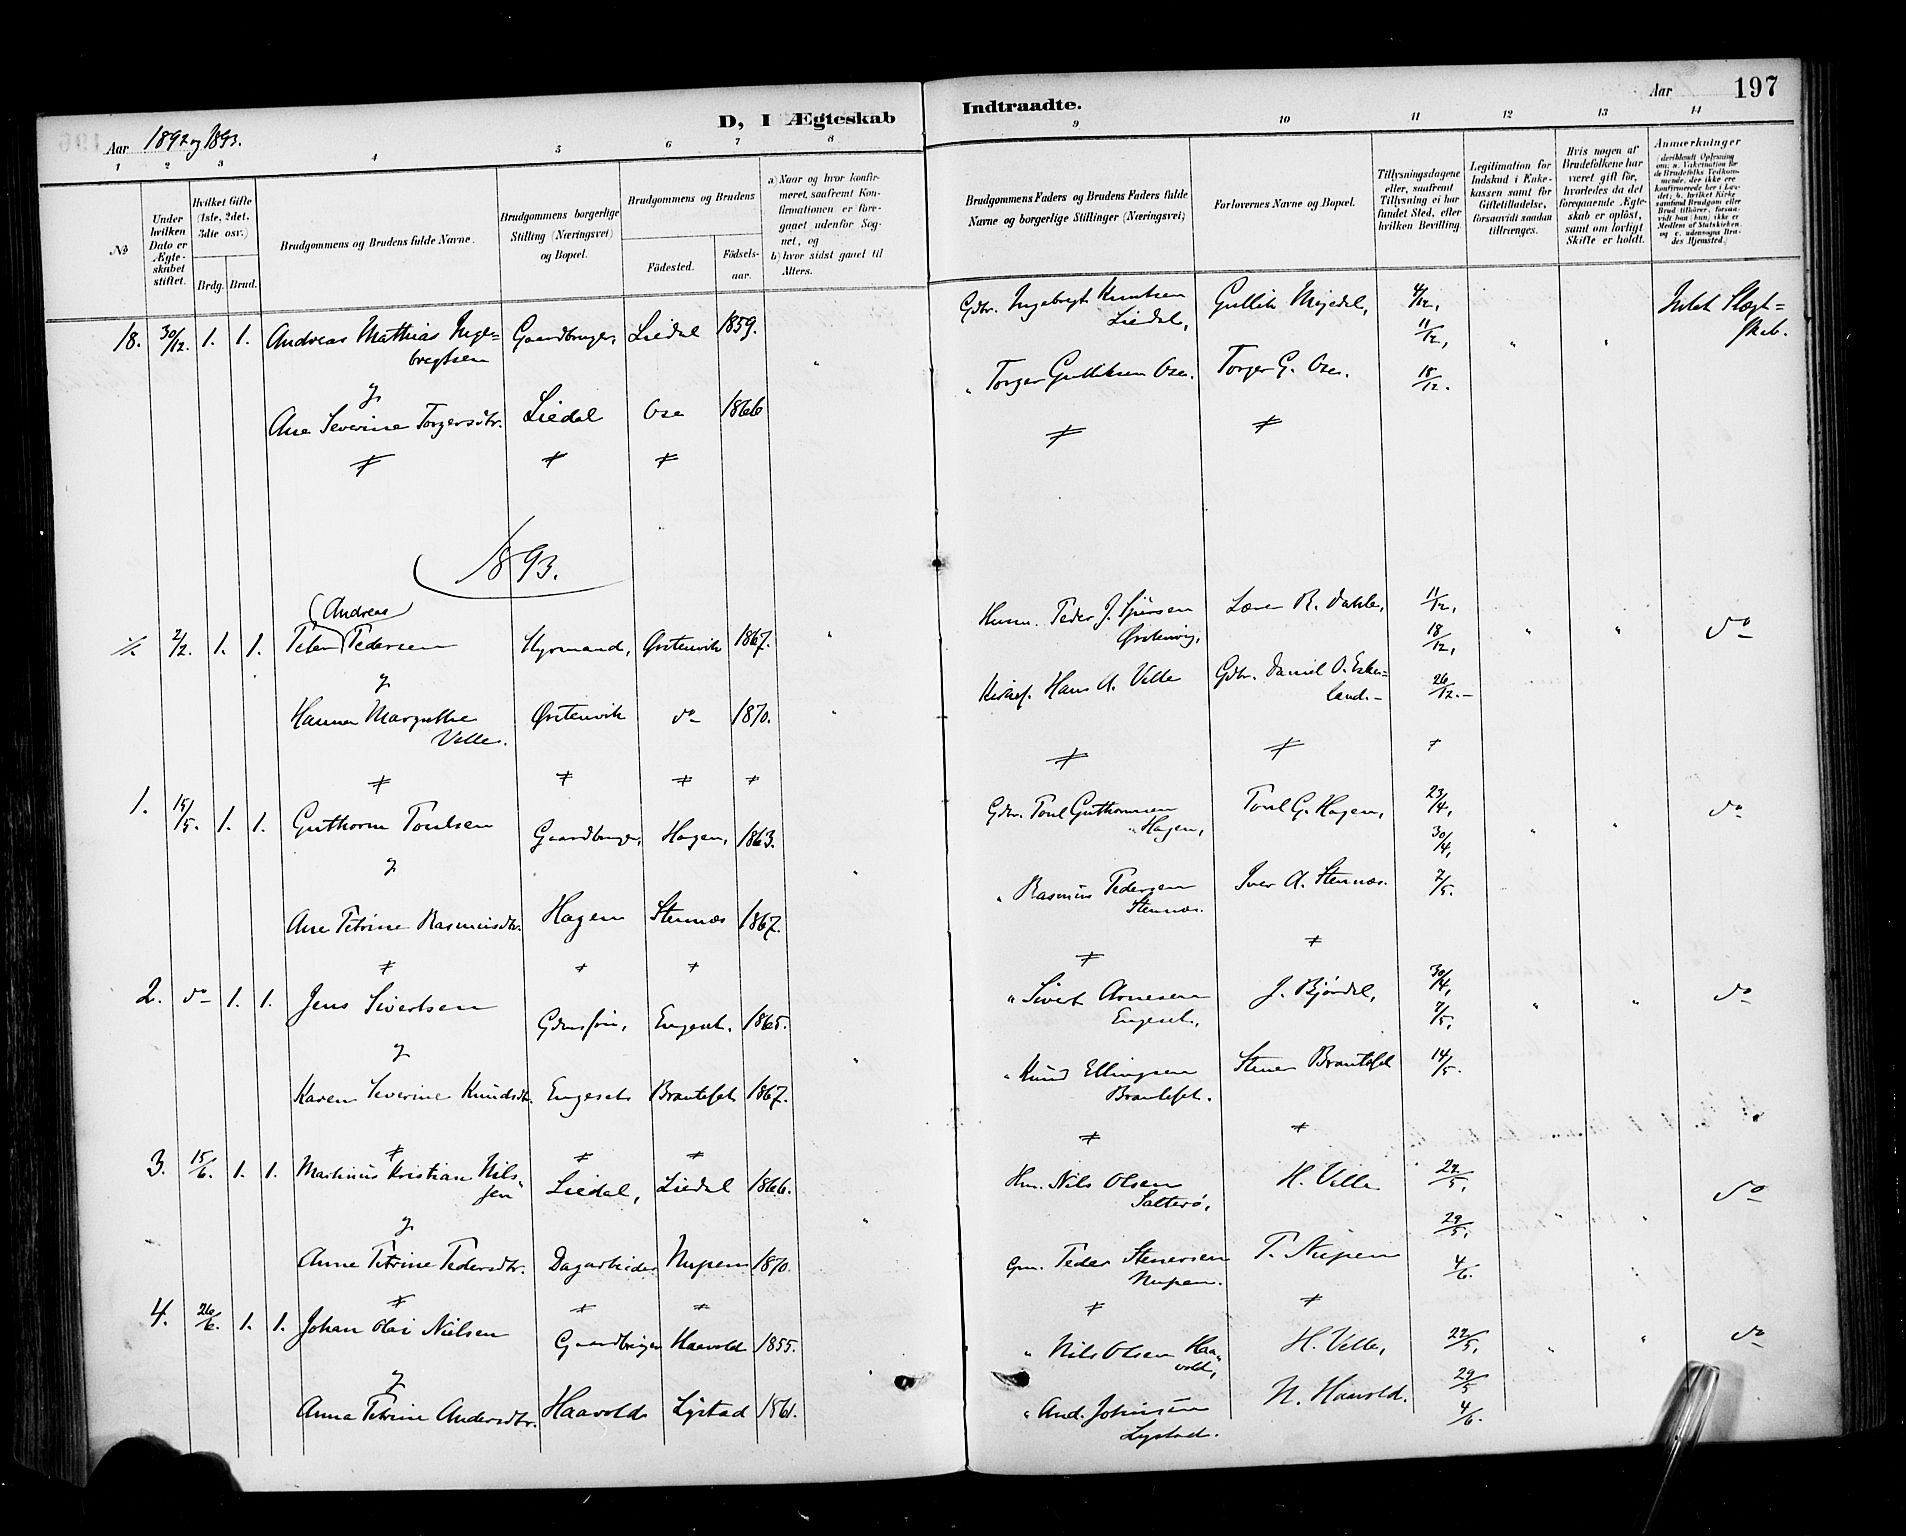 D, I Ægteskab Indtraadte.
Aar 197
Aar 1892 og 1893.
1 2 3 4 5 6 7 8 9 10 11 12 13 14
No
Under hvilken Dato er Ægteskabet stiftet.
Hvilket Gifte (1ste, 2det, 3die osv.)
Brdg. Brud.
Brudgommens og Brudens fulde Navne.
Brudgommens borgerlige Stilling (Næringsvei) og Bopæl.
Brudgommens og Brudens
Fødested.
Fødselsaar.
a) Naar og hvor konfirmeret, saafremt Konfirmationen er foregaaet udenfor Sognet, og
b) hvor sidst gaaet til Alters.
Brudgommens Faders og Brudens Faders fulde Navne og borgerlige Stillinger (Næringsvei)
Forlovernes Navne og Bopæl.
Tillysningsdagene eller, saafremt Tillysning ei har fundet Sted, efter hvilken Bevilling.
Legitimation for Indskud i Enkekassen samt for Giftetilladelse, forsaavidt saadan tiltrænges.
Hvis nogen af Brudefolkene har været gift før, hvorledes da det foregaaende Ægteskab er opløst, samt om lovligt Skifte er holdt.
Anmærkninger
18. 30/12. 1. 1. Andreas Mathias Inge=bregtsen Gaardbruger, Liedal 1859. " Gdbr. Ingebregt Knutsen Liedal, Gullik Myedal, 4/12, 11/12, " " Intet Slægt=skab.
og
Ane Severine Torgersdtr. Liedal Ose 1866 " Torger Gulliksen Ose. Torger G. Ose. 18/12.
1893.
2/2. 1. 1. Peter (Andreas) Pedersen Styrmand, Ørstenvik 1867. " Husm. Peder J. Ørstenvig, Lærer R. Dahle, 11/12, 18/12, " " do
og
Hanna Margrethe Velle. Ørstenvik do 1870. " Kirkes. Hans A. Velle Gdbr. Daniel O. Eske=land. 26/12.
1. 15/5. 1. 1. Guthorm Poulsen Gaardbruger, Hagen, 1863. Gdbr. Poul Guthormsen Hagen, Poul G. Hagen, 23/4, 30/4, " " do
og
Ane Petrine Rasmusdtr. Hagen Stennæs 1867. " Rasmus Pedersen Stennæs. Iver A. Stennæs. 7/5.
2. do 1. 1. Jens Sivertsen Gdmssøn, Engeset, 1865. " Sivert Arnesen Engeset, J. Bjørdal, 30/4, 7/5, " " do
og
Karen Severine Knudsdtr. Engeset Brauteset 1867. " Knud Ellingsen Brauteset. Stener Brauteset 14/5.
3. 15/6. 1. 1. Martinus Kristian Nilssen Liedal, Liedal 1866. Hm. Nils Olsen Salterø, H. Velle 22/5, " " do
og
Anne Petrine Pedersdtr. Dagarbeider Nupen 1870. Gm. Peder Stenersen Nupen. P. Nupen 29/5, 4/6.
4. 26/6. 1. 1. Johan Olai Nielsen Gaardbruger Haavold 1855. " Nils Olsen Haavold, H. Velle, 22/5, " " do
og
Anna Petrine Andersdtr. Haavold Lystad 1861. " And. Johnsen Lystad. N. Haavold. 29/5 4/6.